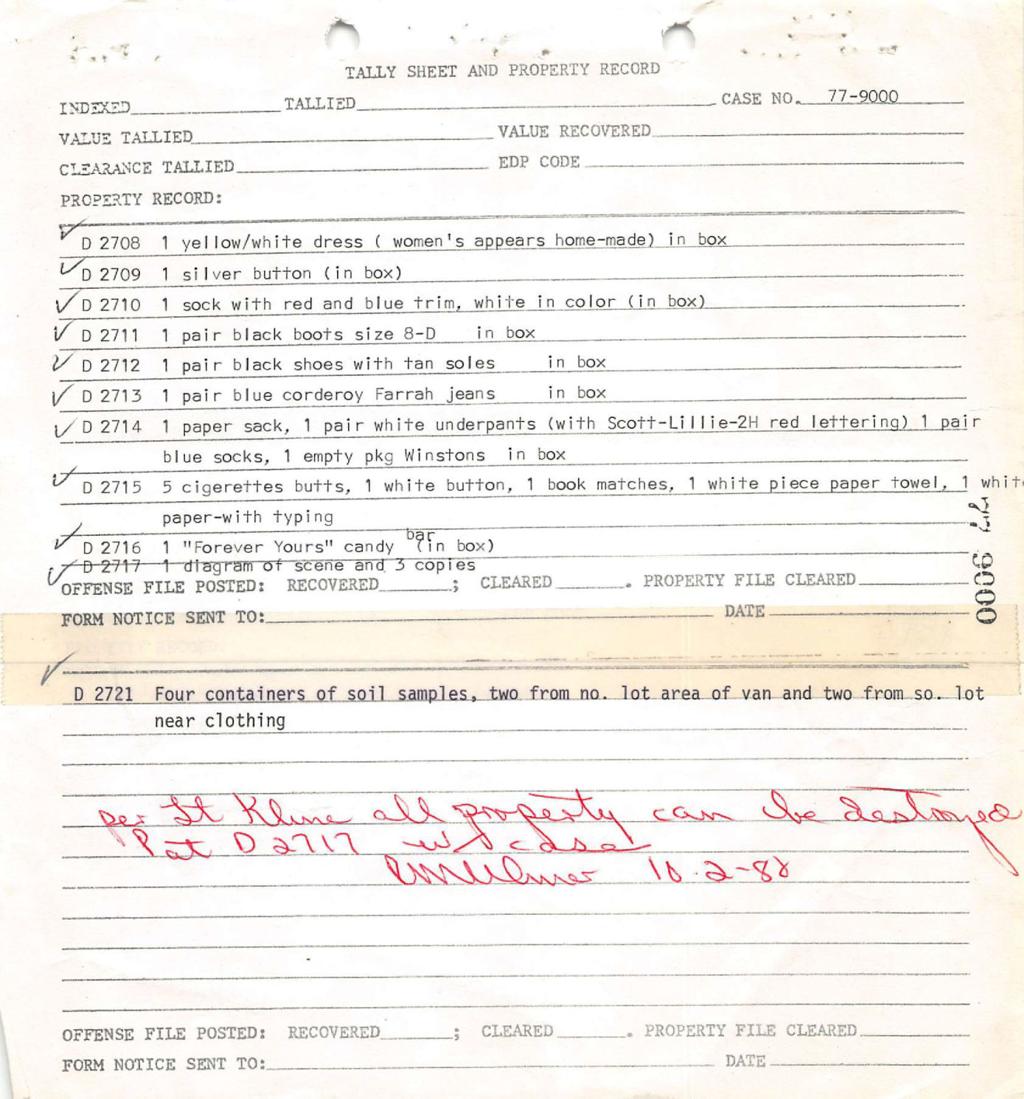 TALLY SHEET AND PROPERTY RECORD
INDEXED TALLIED CASE NO. 77-9000
VALUE TALLIED VALUE RECOVERED
CLEARANCE TALLIED EDP CODE
PROPERTY RECORD:
D 2708 1 yellow/white dress ( women's appears home-made) in box
D 2709 1 silver button (in box)
D 2710 1 sock with red and blue trim, white in color (in box)
D 2711 1 pair black boots size 8-D in box
D 2712 1 pair black shoes with tan soles in box
D 2713 1 pair blue corderoy Farrah jeans in box
D 2714 1 paper sack, 1 pair white underpants (with Scott-Lillie-2H red lettering) 1 pair
blue socks, 1 empty pkg Winstons in box
D 2715 5 cigerettes butts, 1 white button, 1 book matches, 1 white piece paper towel, 1 whit
paper-with typing
D 2716 1 "Forever Yours" candy bar (in box)
D 2717 1 diagram of scene and 3 copies
OFFENSE FILE POSTED: RECOVERED ; CLEARED . PROPERTY FILE CLEARED
77 9000
FORM NOTICE SENT TO: DATE
D 2721 Four containers of soil samples, two from no. lot area of van and two from so. lot
near clothing
per Lt Kline all property can be destroyed
Put D 2717 w/ case
10-2-88
OFFENSE FILE POSTED: RECOVERED ; CLEARED . PROPERTY FILE CLEARED
FORM NOTICE SENT TO: DATE